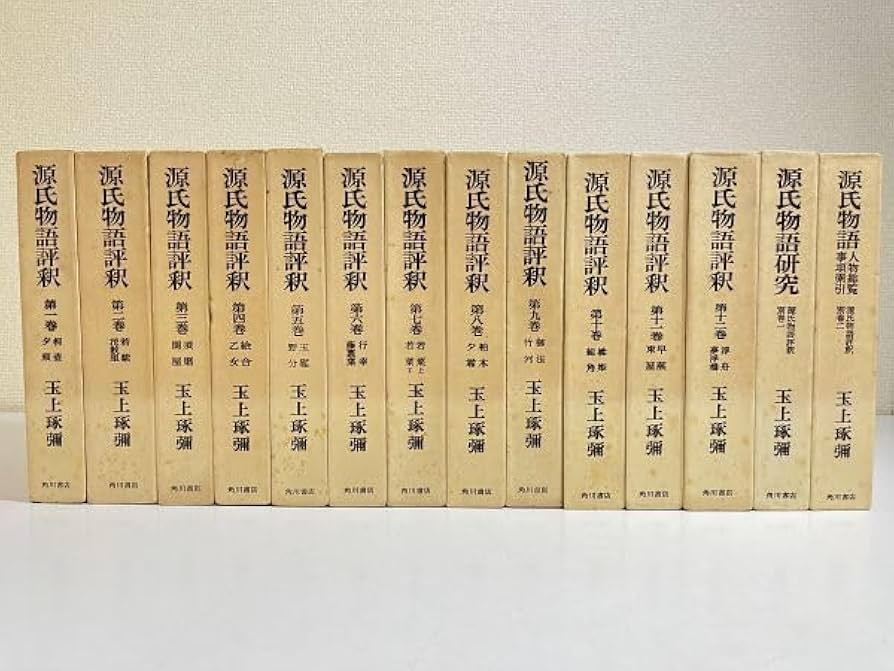 源氏物語評釈
第一巻
桐壺
夕顔
玉上琢彌
角川書店
源氏物語評釈
第二巻
若紫
花散里
玉上琢彌
角川書店
源氏物語評釈
第三巻
須磨
関屋
玉上琢彌
角川書店
源氏物語評釈
第四巻
絵合
乙女
玉上琢彌
角川書店
源氏物語評釈
第五巻
玉鬘
野分
玉上琢彌
角川書店
源氏物語評釈
第六巻
行幸
藤裏葉
玉上琢彌
角川書店
源氏物語評釈
第七巻
若菜上
若菜下
玉上琢彌
角川書店
源氏物語評釈
第八巻
柏木
夕霧
玉上琢彌
角川書店
源氏物語評釈
第九巻
御法
竹河
玉上琢彌
角川書店
源氏物語評釈
第十巻
橋姫
総角
玉上琢彌
角川書店
源氏物語評釈
第十一巻
早蕨
東屋
玉上琢彌
角川書店
源氏物語評釈
第十二巻
浮舟
夢浮橋
玉上琢彌
角川書店
源氏物語研究
源氏物語評釈
別巻一
玉上琢彌
角川書店
源氏物語
人物総覧
事項索引
源氏物語評釈
別巻二
玉上琢彌
角川書店